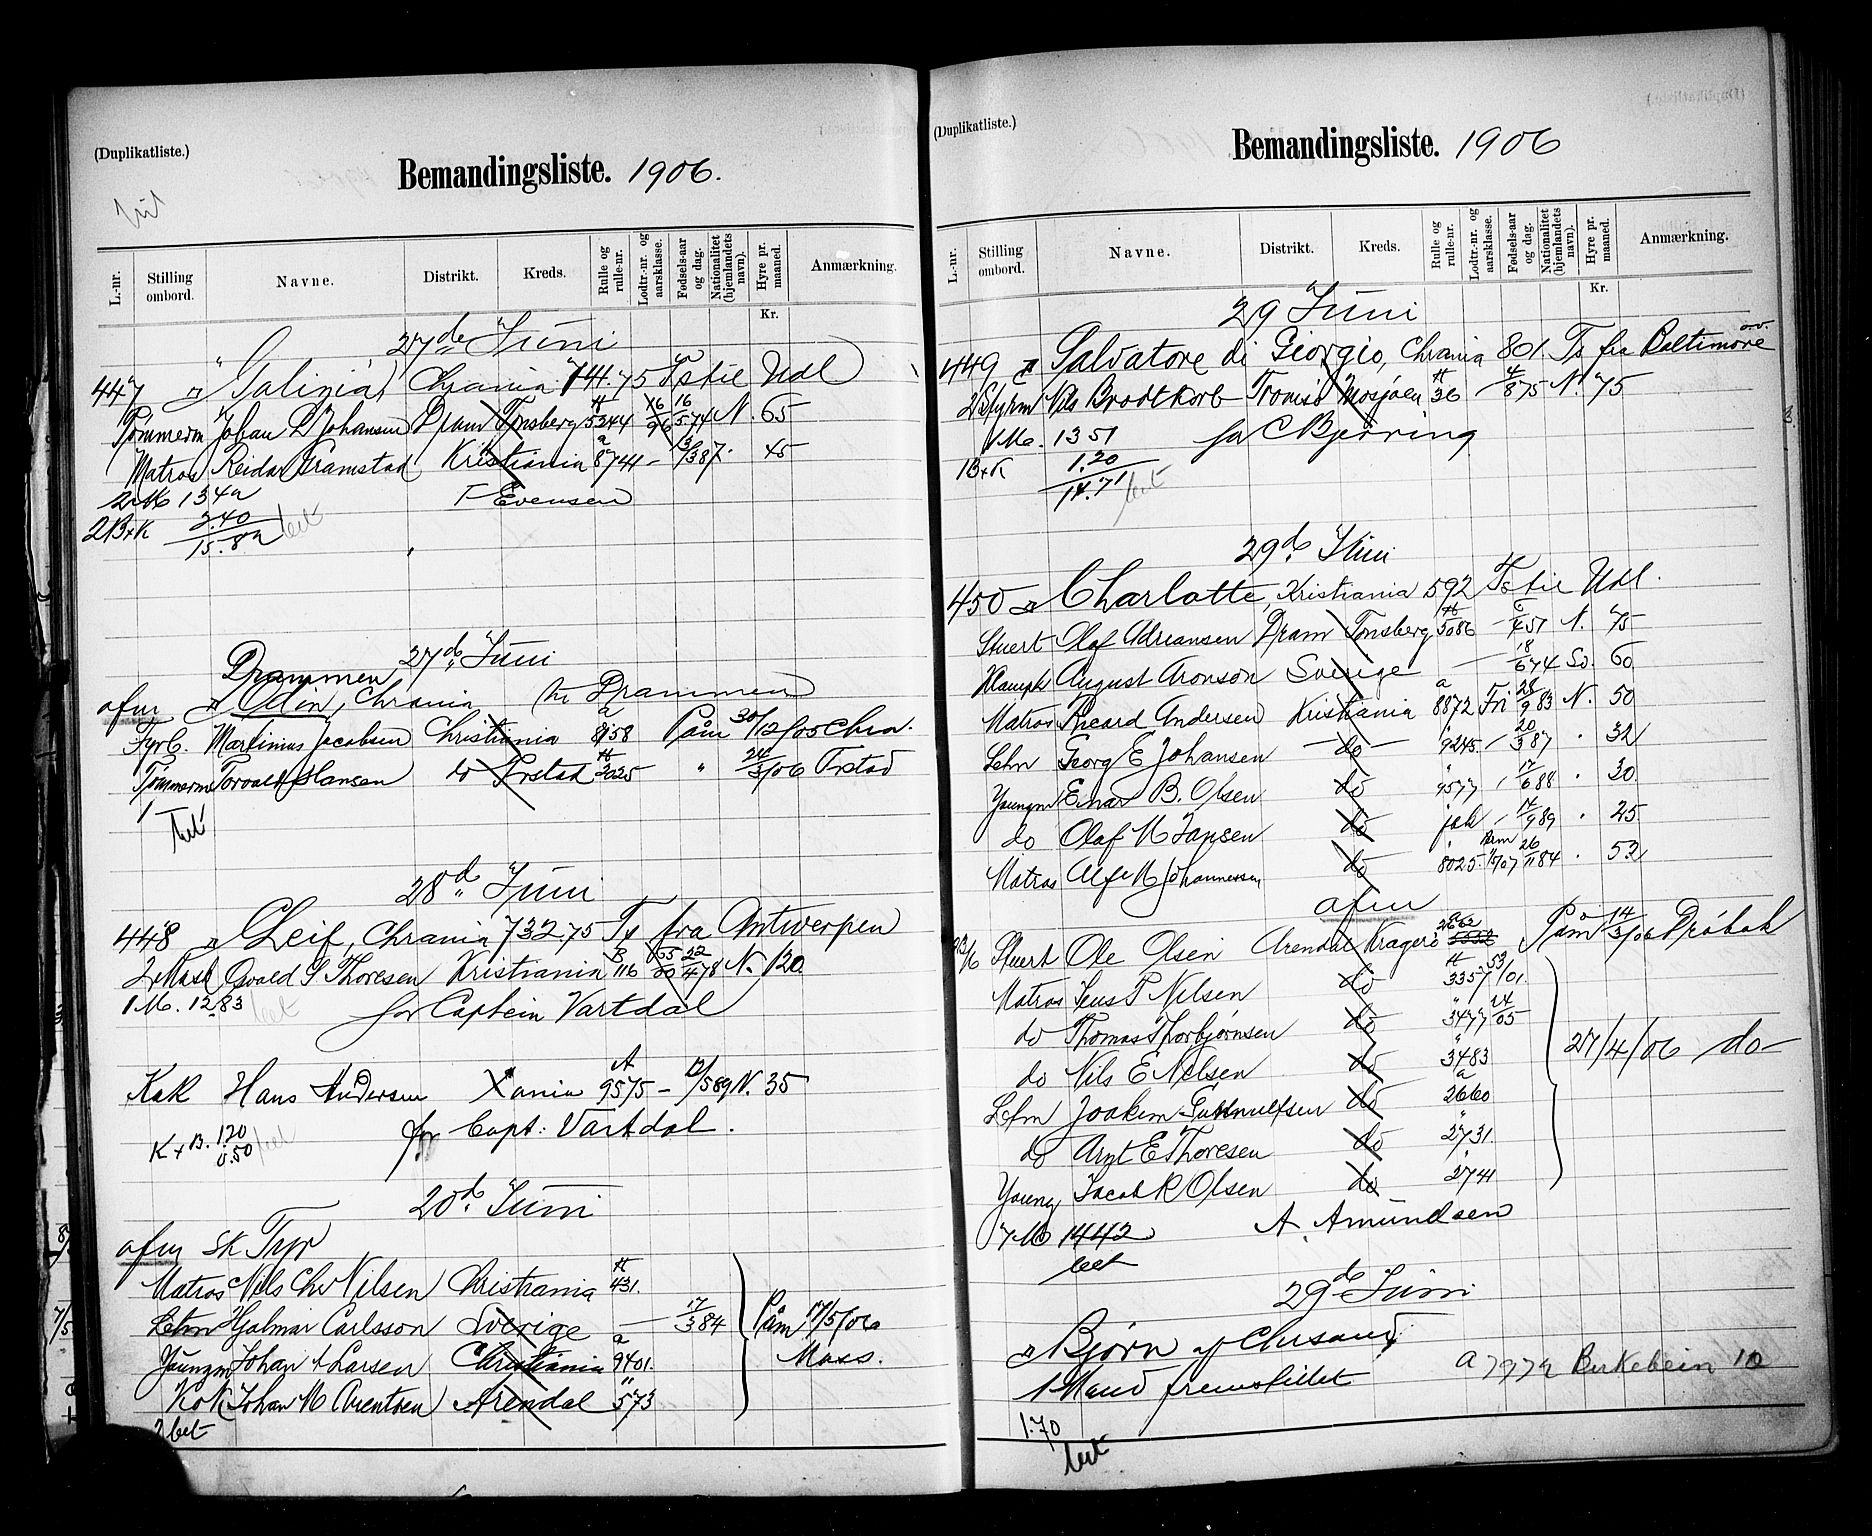 (Duplikatliste.)
Bemandingsliste. 1906.
L.-nr. Stilling ombord. Navne. Distrikt. Kreds. Rulle og rulle-nr. Lodtr.-nr. og aarsklasse. Fødsels-aar og dag. Nationalitet (hjemlandets navn). Hyre pr. maaned. Anmærkning.
Kr.
27de Juni
447 Galizia, Chrania 741.75 Ts til Udl
Tømmerm Johan D Johansen Dram Tønsberg 5244 16/5 74 N. 65
Matros Reidar Gramstad Kristiania a 8741 - 87. 45
134a Evensen
2B+K 2.40
15.8a bet
27d Juni
Drammen
afm Odin, Chrania Drammen
Fyrb. Martinius Jacobsen Christiania a 8158 Påm 30/12/05 Chra.
Tømmerm Torvald Hansen do Frstad 3025 " 24/3/06 Frstad
1 bet
28d Juni
448 Leif, Chrania 732.75 Ts fra Antwerpen
2 Mask Osvald S Thoresen Kristiania B 116 22/4 78 N. 120
1 M. 12.83 bet for Captein Vartdal
Kok Hans Andersen Xania A 9575 - 12/5 89 N. 35
K+B. 1.20
0.50 bet for Capt: Vartdal.
20d Juni
afm Sk Tyr
Matros Nils Chr Nilsen Christiania 431.
Letm Hjalmar Carlsson Sverige - 17/3 84 Påm 17/5/06
Youngm Johan A Larsen Christiania a 9401. Moss.
Kok Johan M Arentsen Arendal " 573
2 bet
(Duplikatliste.)
Bemandingsliste. 1906
L.-nr. Stilling ombord. Navne. Distrikt. Kreds. Rulle og rulle-nr. Lodtr.-nr. og aarsklasse. Fødsels-aar og dag. Nationalitet (hjemlandets navn). Hyre pr. maaned. Anmærkning.
Kr.
29 Juni
449 Salvatore di Giorgio, Chrania 801 Ts fra Baltimore
2 Styrm Nils Brodtkorb Tromsø Mosjøen 36 - 4/8 75 N. 75
1 M. 13 51 for C Bjerring
1B+K 1.20
14.71 bet
29d Juni
450 Charlotte, Kristiania 592 Ts til Udl.
Stuert Olaf Adriansen Dram Tønsberg 5086 - 6/4 51 N. 75
August Aronson Sverige - 18/6 74 Sv. 60
Matros Ricard Andersen Kristiania a 8872 Fri 28/9 83 N. 50
Letm Georg E Johansen - do - 9245 - 20/3 87 . 32
Youngm Einar B. Olsen do 9577 - 17/6 88 . 30
do Olaf M Jansen do - 14/9 89 . 25
Matros Alf M Johannessen do 8025 26/11 84 . 52
afm
Stuert Ole Olsen Arendal Kragerø 2662 Påm 14/3/06 Drøbak
Matros Jens P Nilsen do 3357 53/01.
do Thomas Thorbjørnsen do " 3477 24/05
do Nils E Nilsen do " 3483 27/4/06 do-
Letm Joakim Gunnulfsen do a 2660
do Arnt E Thoresen do " 2731
Young Jacob R Olsen do " 2741
7 M 14 42 A. Amundsen
bet
29d Juni
Bjørn af Chrsand
1 Mand fremstillet a 7972 Birkebein 10
1.70
bet